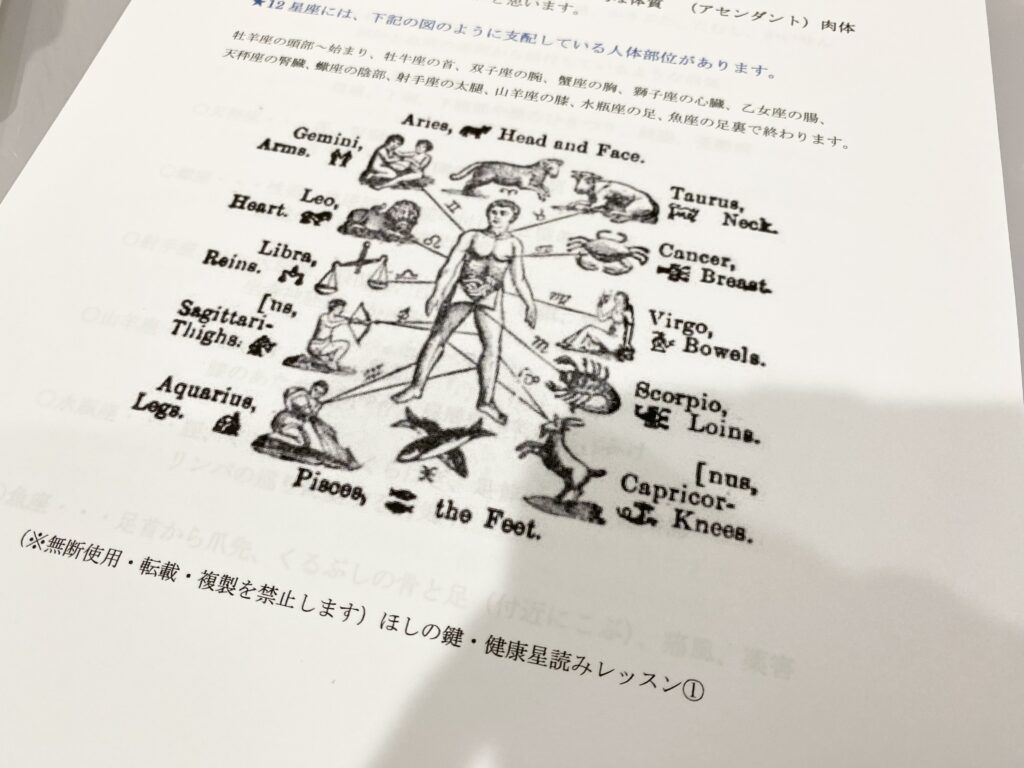 な体質 （アセンダント）肉体
と思います。
★12星座には、下記の図のように支配している人体部位があります。
牡羊座の頭部～始まり、牡牛座の首、双子座の腕、蟹座の胸、獅子座の心臓、乙女座の腸、
天秤座の腎臓、蠍座の陰部、射手座の太腿、山羊座の膝、水瓶座の足、魚座の足裏で終わります。
Aries, Head and Face.
Gemini,
Arms.
Taurus,
Neck.
Leo,
Heart.
Cancer,
Breast.
Libra,
Reins.
Virgo,
Bowels.
[ns,
Sagittari-
Thighs.
Scorpio,
Loins.
Aquarius,
Legs.
[nus,
Capricor-
Knees.
Pisces, the Feet.
魚座・・・足首から爪先、くるぶしの骨と足（付近にこぶ）、痛風、薬害
（※無断使用・転載・複製を禁止します）ほしの鍵・健康星読みレッスン①